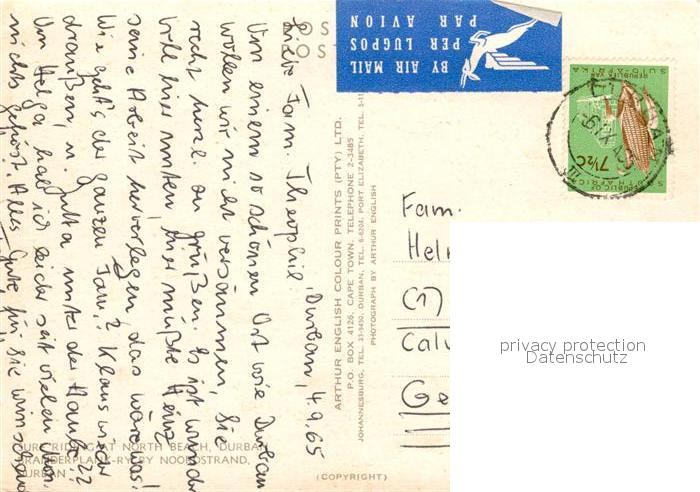 Durban, 4.9.65
Liebe Fam. Theophil!
Von einem so schönen Ort wie Durban
wollen wir nicht versäumen, Sie
recht herzl. zu grüßen. Es ist wunder
voll hier unten, hier müßte Heinz
seine Arbeit hinverlegen, das wäre was!
Wie geht's der ganzen Fam.? Klaus wieder
draußen, u. Jutta unter der Haube??
Von Helga hab ich leider seit vielen
nichts gehört. Alles Gute für Sie
SURF RIDING AT NORTH BEACH, DURBAN
BRANDERPLANK-RY BY NOORDSTRAND,
DURBAN
ARTHUR ENGLISH COLOUR PRINTS (PTY) LTD.
P.O. BOX 4126, CAPE TOWN. TELEPHONE 2-3485
JOHANNESBURG, TEL. 23-9450, DURBAN, TEL. 6-6204, PORT ELIZABETH, TEL. 5-11
PHOTOGRAPH BY ARTHUR ENGLISH
(COPYRIGHT)
POS
POST
BY AIR MAIL
PER LUGPOS
PAR AVION
REPUBLIC OF
SOUTH AFRICA
7½C
REPUBLIEK VAN
SUID-AFRIKA
Fam.
Hel
(17)
Calw
Ge
privacy protection
Datenschutz